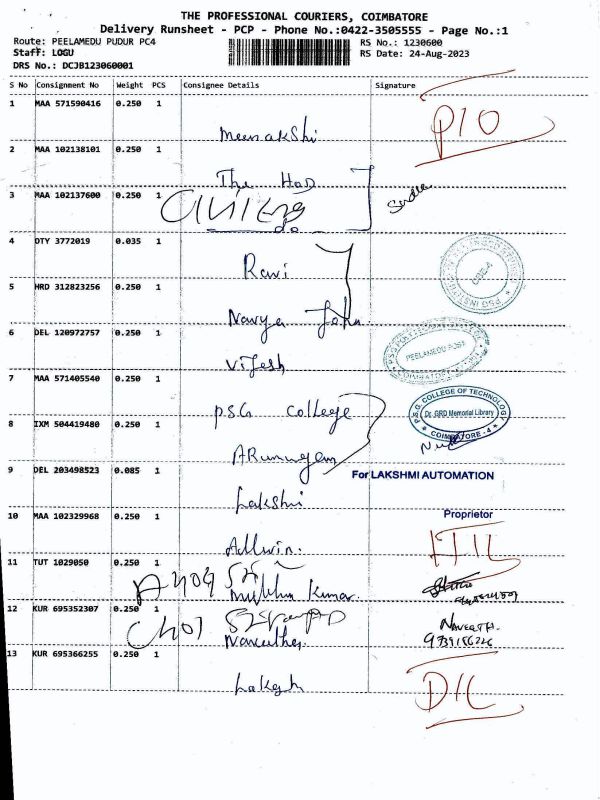 THE PROFESSIONAL COURIERS, COIMBATORE
Delivery Runsheet - PCP - Phone No.:0422-3505555 - Page No.:1
Route: PEELAMEDU PUDUR PC4 RS No.: 1230600
Staff: LOGU RS Date: 24-Aug-2023
DRS No.: DCJB123060001
S No Consignment No Weight PCS Consignee Details Signature
1 MAA 571590416 0.250 1 Meenakshi
2 MAA 102138101 0.250 1 The
3 MAA 102137600 0.250 1 do
4 DTY 3772019 0.035 1 Ravi
5 HRD 312823256 0.250 1 Navya
6 DEL 120972757 0.250 1 Vijesh
PEELAMEDU POST
COIMBATORE
7 MAA 571405540 0.250 1 PSG College
P.S.G. COLLEGE OF TECHNOLOGY
Dr. GRD Memorial Library
COIMBATORE-4
8 IXM 504419480 0.250 1 ARumugam
9 DEL 203498523 0.085 1 Lakshmi
For LAKSHMI AUTOMATION
Proprietor
10 MAA 102329968 0.250 1 Adlwin.
11 TUT 1029050 0.250 1 Muthu Kumar.
12 KUR 695352307 0.250 1
13 KUR 695366255 0.250 1 Lokesh